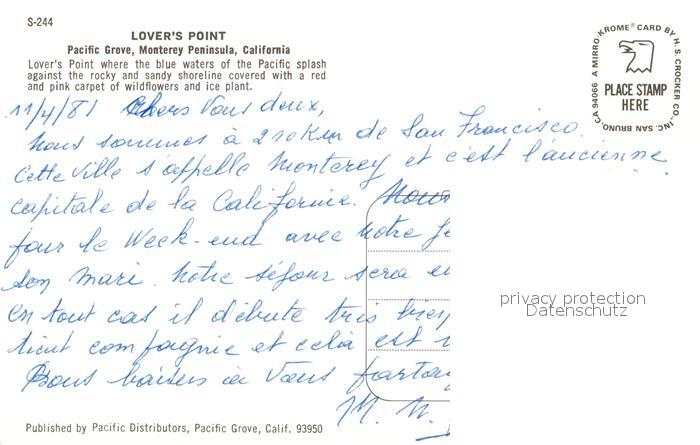 S-244
LOVER'S POINT
Pacific Grove, Monterey Peninsula, California
Lover's Point where the blue waters of the Pacific splash
against the rocky and sandy shoreline covered with a red
and pink carpet of wildflowers and ice plant.
A MIRRO-KROME® CARD BY H. S. CROCKER CO., INC. SAN BRUNO, CA 94066
PLACE STAMP
HERE
11/4/81 Chers Vous deux,
Nous sommes à 210 Km de San Francisco.
Cette Ville s'appelle Monterey et c'est l'ancienne
capitale de la Californie. Nous
pour le Week-end avec notre
son mari. Notre séjour sera
En tout cas il débute très bien
tient compagnie et cela est
Bons baisers à Vous
M. M.
privacy protection
Datenschutz
Published by Pacific Distributors, Pacific Grove, Calif. 93950